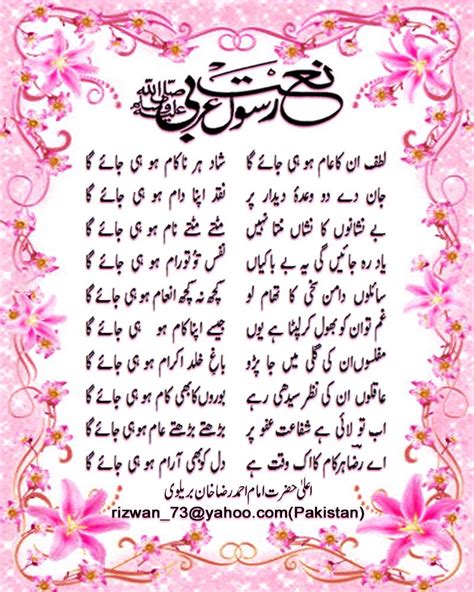 نعت رسول عربی صلی اللہ علیہ وسلم
لطف ان کا عام ہو ہی جائے گا شاد ہر ناکام ہو ہی جائے گا
جان دے دو وعدۂ دیدار پر نقد اپنا دام ہو ہی جائے گا
بے نشانوں کا نشاں مٹتا نہیں مٹتے مٹتے نام ہو ہی جائے گا
یاد رہ جائیں گی یہ بے باکیاں نفس تو تو رام ہو ہی جائے گا
سائلوں دامن سخی کا تھام لو کچھ نہ کچھ انعام ہو ہی جائے گا
غم تو ان کو بھول کر لپٹا ہے یوں جیسے اپنا کام ہو ہی جائے گا
مفلسوں ان کی گلی میں جا پڑو باغِ خلد اکرام ہو ہی جائے گا
عاقلوں ان کی نظر سیدھی رہے بوروں کا بھی کام ہو ہی جائے گا
اب تو لائی ہے شفاعت عفو پر بڑھتے بڑھتے عام ہو ہی جائے گا
اے رضا ہر کام کا اک وقت ہے دل کو بھی آرام ہو ہی جائے گا
اعلیٰ حضرت امام احمد رضا خان بریلوی
rizwan_73@yahoo.com(Pakistan)